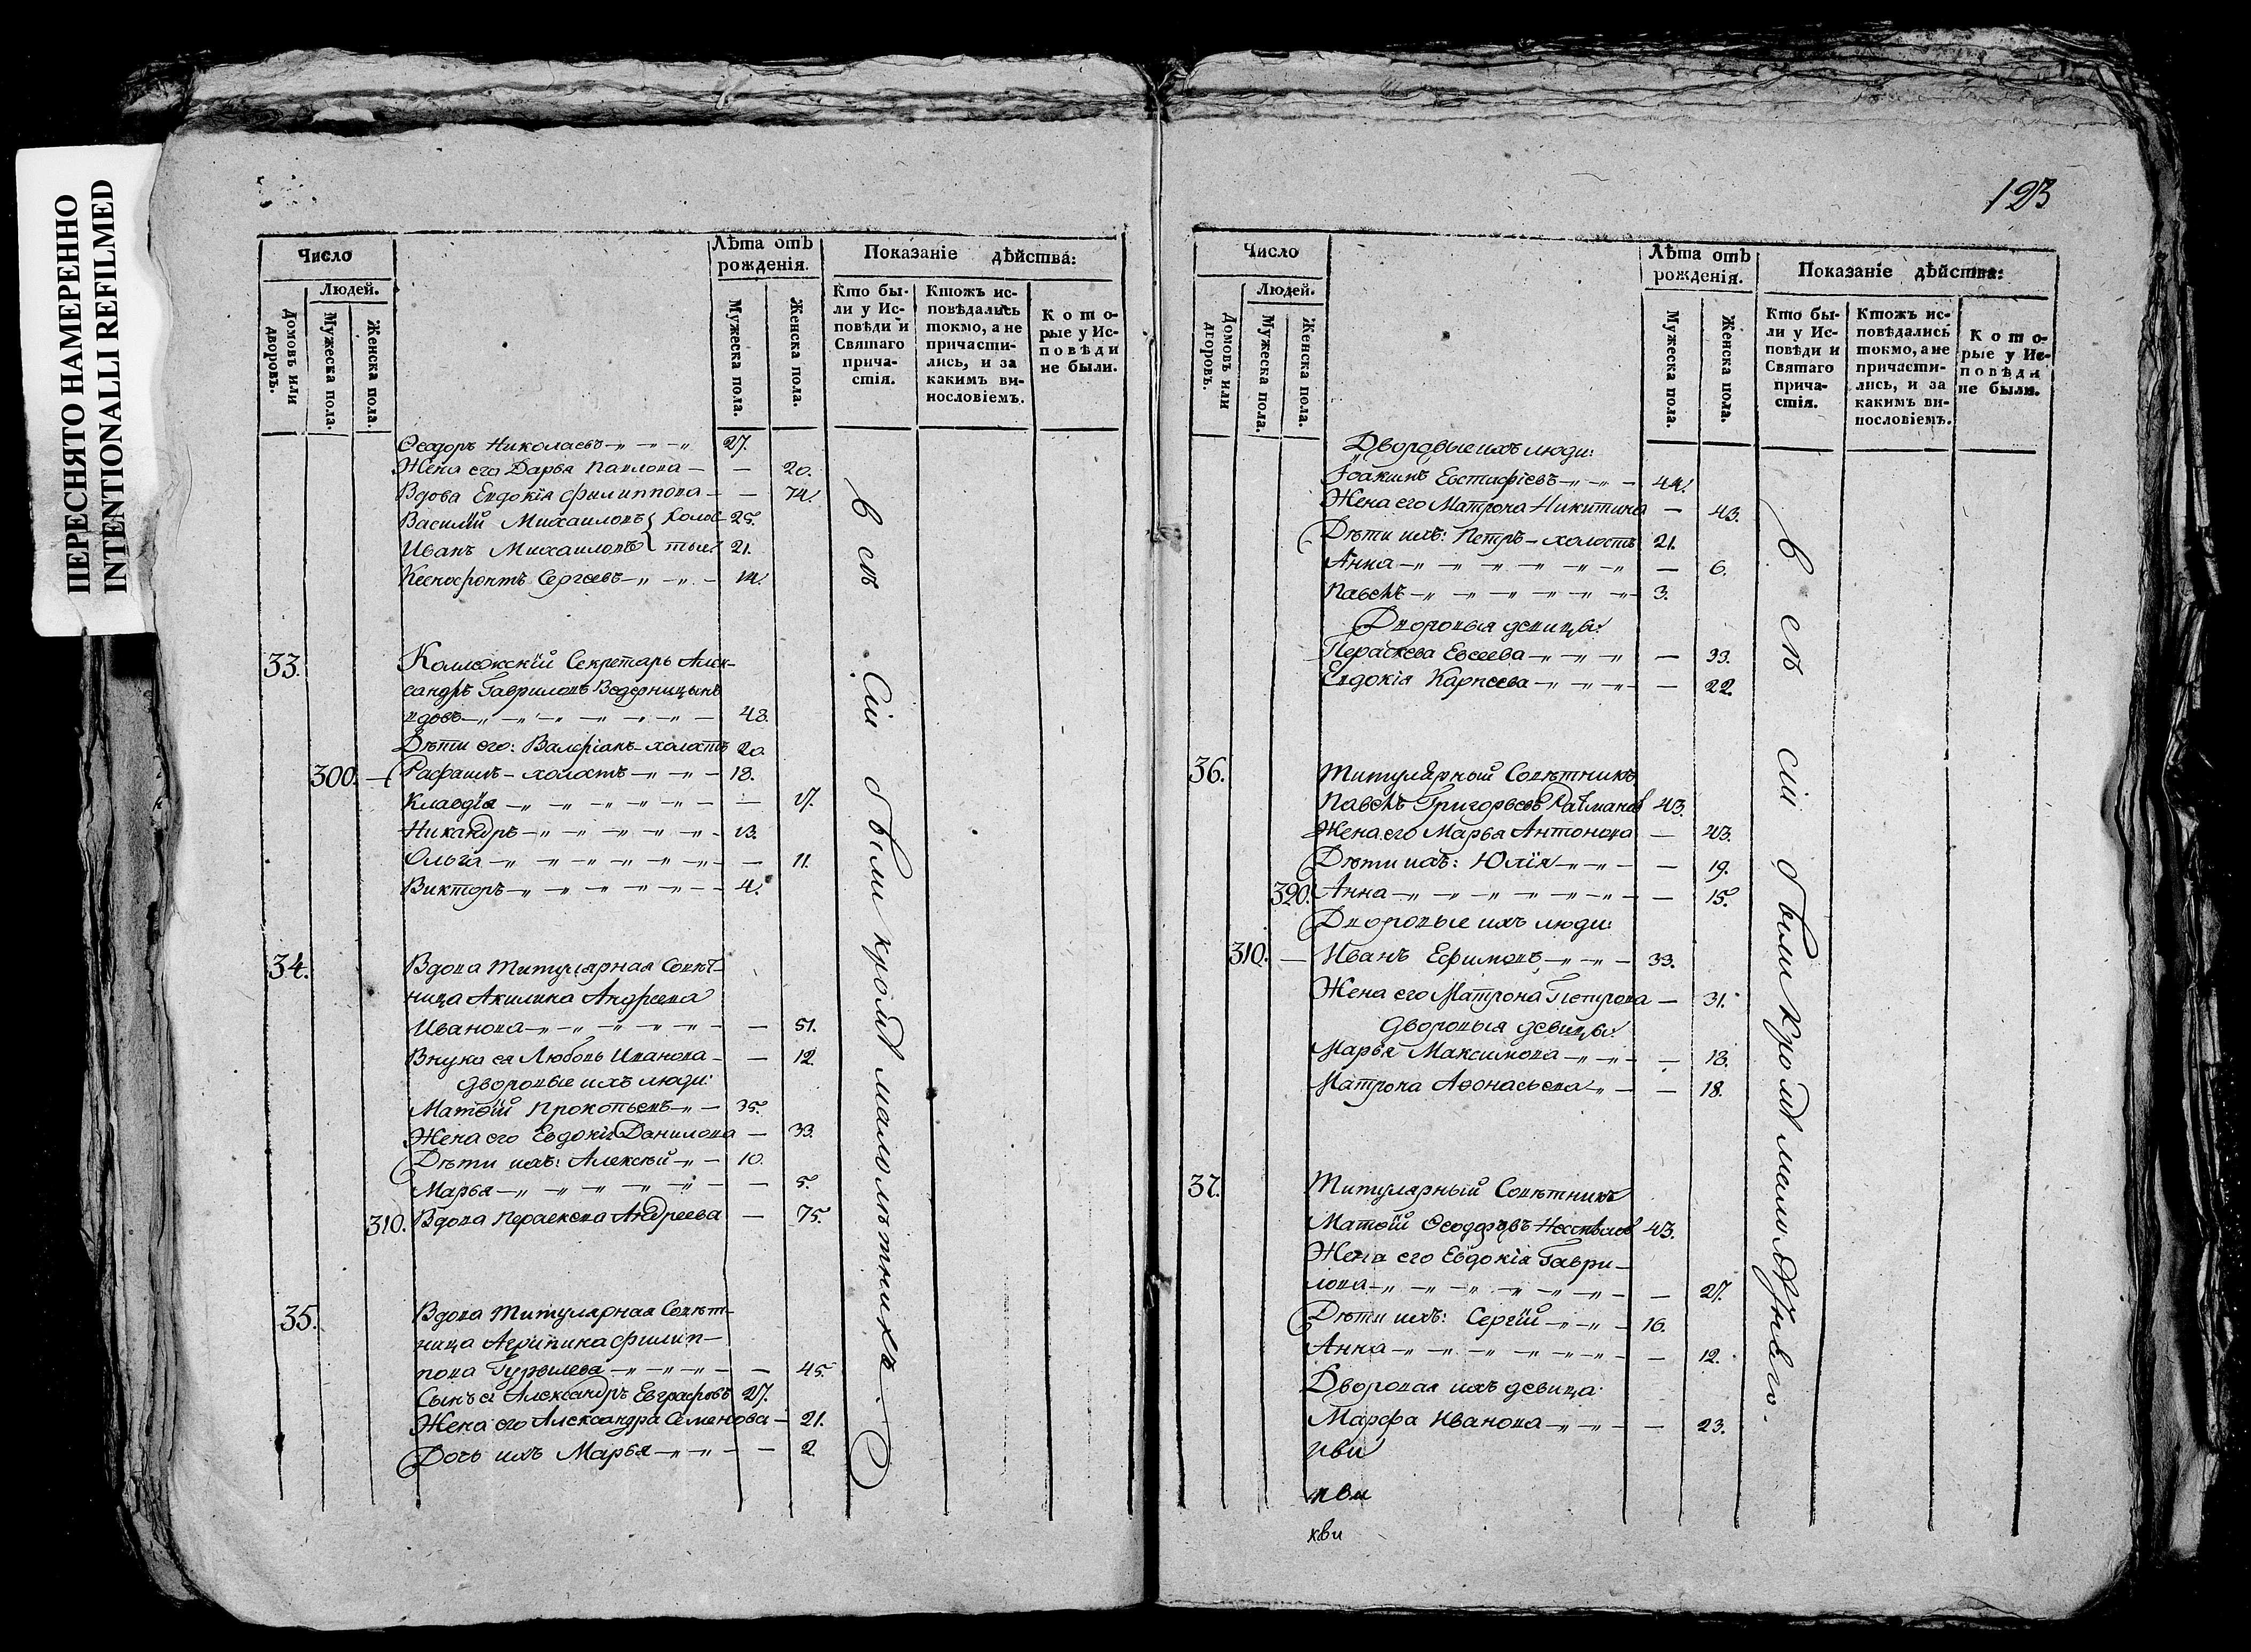 ПЕРЕСНЯТО НАМЕРЕННО
INTENTIONALLI REFILMED
Число
Лѣта отъ рожденія.
Показаніе дѣйства:
Людей.
Домовъ или дворовъ.
Мужеска пола.
Женска пола.
Мужеска пола.
Женска пола.
Кто бы-
ли у Ис-
повѣди и
Святаго
прича-
стія.
Ктожъ ис-
повѣдались
токмо, а не
причасти-
лись, и за
какимъ ви-
нословіемъ.
Кото-
рые у Ис-
повѣди
не были.
Ѳеодоръ Николаевъ 27.
Жена его Дарья Павлова — 20.
Вдова Евдокія Филиппова — 74.
Василій Михаиловъ } Холос- 25.
Иванъ Михаиловъ } тые. 21.
Ксенофонтъ Сергеевъ 14.
33. Коллежскій Секретарь Алек-
сандръ Гавриловъ Ведерницынъ
вдовъ 48.
Дѣти его: Валеріанъ - холостъ 20
300. Рафаилъ - холостъ 18.
Клавдія — 17.
Никандръ 13.
Ольга — 11.
Викторъ 4.
34. Вдова Титулярная Совѣт-
ница Акилина Андреева
Иванова — 51.
Внука ея Любовь Иванова — 12.
Дворовые ихъ люди:
Матѳій Прокопьевъ 35.
Жена его Евдокія Данилова — 33.
Дѣти ихъ: Алексѣй 10.
Марья — 5.
310. Вдова Параскева Андреева — 75.
35. Вдова Титулярная Совѣт-
ница Агрипина Филип-
пова Гурылева — 45.
Сынъ ея Александръ Евграфовъ 27.
Жена его Александра Семенова — 21.
Дочь ихъ Марья — 2.
всѣ сіи были кромѣ малолѣтнихъ.
123
Число
Лѣта отъ рожденія.
Показаніе дѣйства:
Людей.
Домовъ или дворовъ.
Мужеска пола.
Женска пола.
Мужеска пола.
Женска пола.
Кто бы-
ли у Ис-
повѣди и
Святаго
прича-
стія.
Ктожъ ис-
повѣдались
токмо, а не
причасти-
лись, и за
какимъ ви-
нословіемъ.
Кото-
рые у Ис-
повѣди
не были.
Дворовые ихъ люди:
Іоакимъ Евстифіевъ 44.
Жена его Матрона Никитина — 43.
Дѣти ихъ: Петръ - холостъ 21.
Анна — 6.
Павелъ 3.
Дворовыя девицы:
Параскева Евсеева — 33.
Евдокія Карпеева — 22.
36. Титулярный Совѣтникъ
Павелъ Григорьевъ 43.
Жена его Марья Антонова — 43.
Дѣти ихъ: Юлія — 19.
320. Анна — 15.
Дворовые ихъ люди:
310. Иванъ Ефимовъ 33.
Жена его Матрона Петрова — 31.
Дворовыя девицы:
Марья Максимова — 18.
Матрона Аѳонасьева — 18.
37. Титулярный Совѣтникъ
Матѳій Ѳеодоровъ 43.
Жена его Евдокія Гаври-
лова — 27.
Дѣти ихъ: Сергій 16.
Анна — 12.
Дворовая ихъ девица:
Марфа Иванова — 23.
всѣ сіи были кромѣ малолѣтняго.